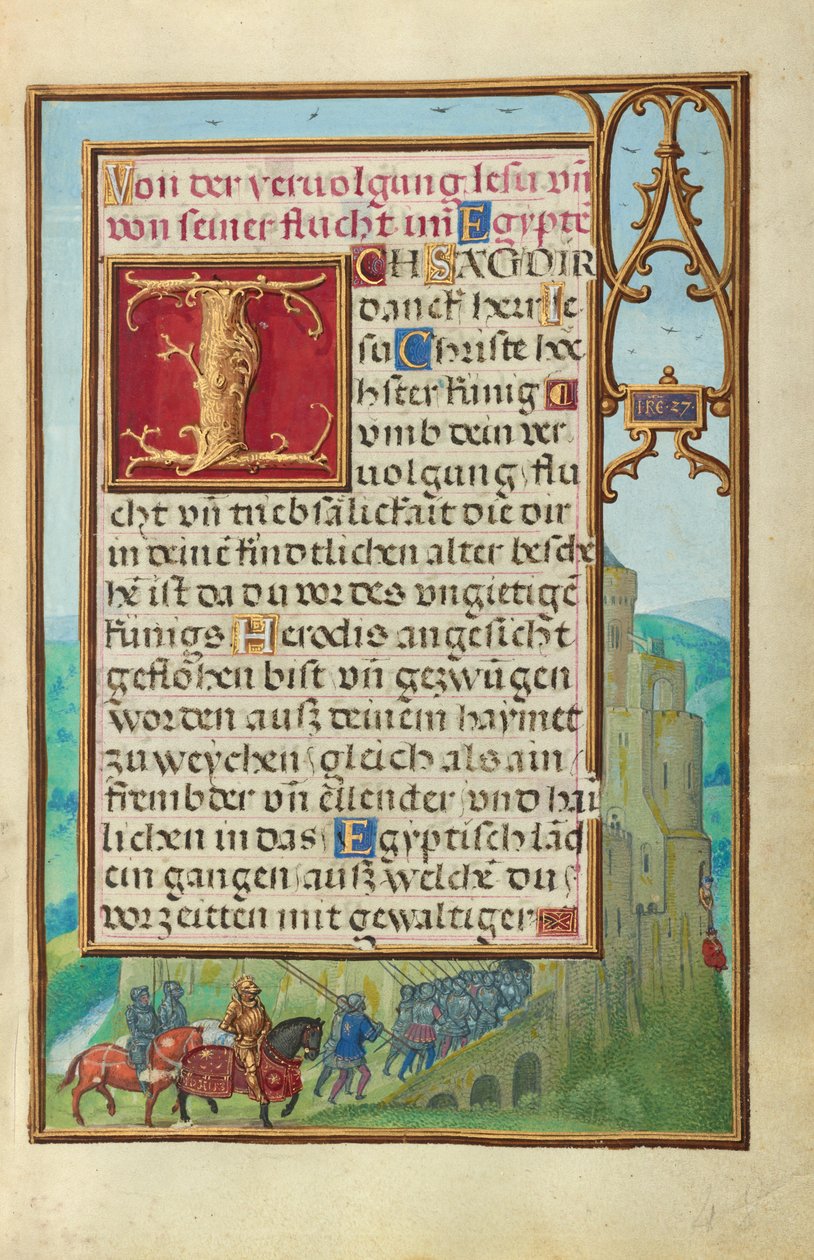 Von der vervolgung Iesu vn̄
von seiner flucht im̄ Egyptē
ICH SAG DIR
danck herr Ie
su Christe höc
hster künig
vmb dein ver
uolgung flu
cht vn̄ triebsälickait die dir
in deinē kindtlichen alter beschē
hē ist da du vor des vngietigē
künigs Herodis angesicht
geflohen bist vn̄ gezwūgen
worden ausz deinem haymet
zu weychen gleich als ain
frembder vn̄ ellender vnd haīm
lichen in das Egyptisch lād
ein gangen ausz welchē du
vor zeitten mit gewaltiger
I·RE·27